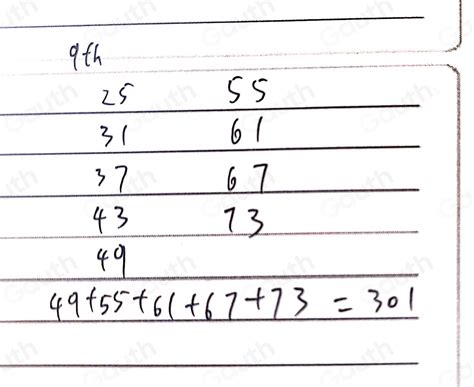 9th
25 55
31 61
37 67
43 73
49
49+55+61+67+73 = 301